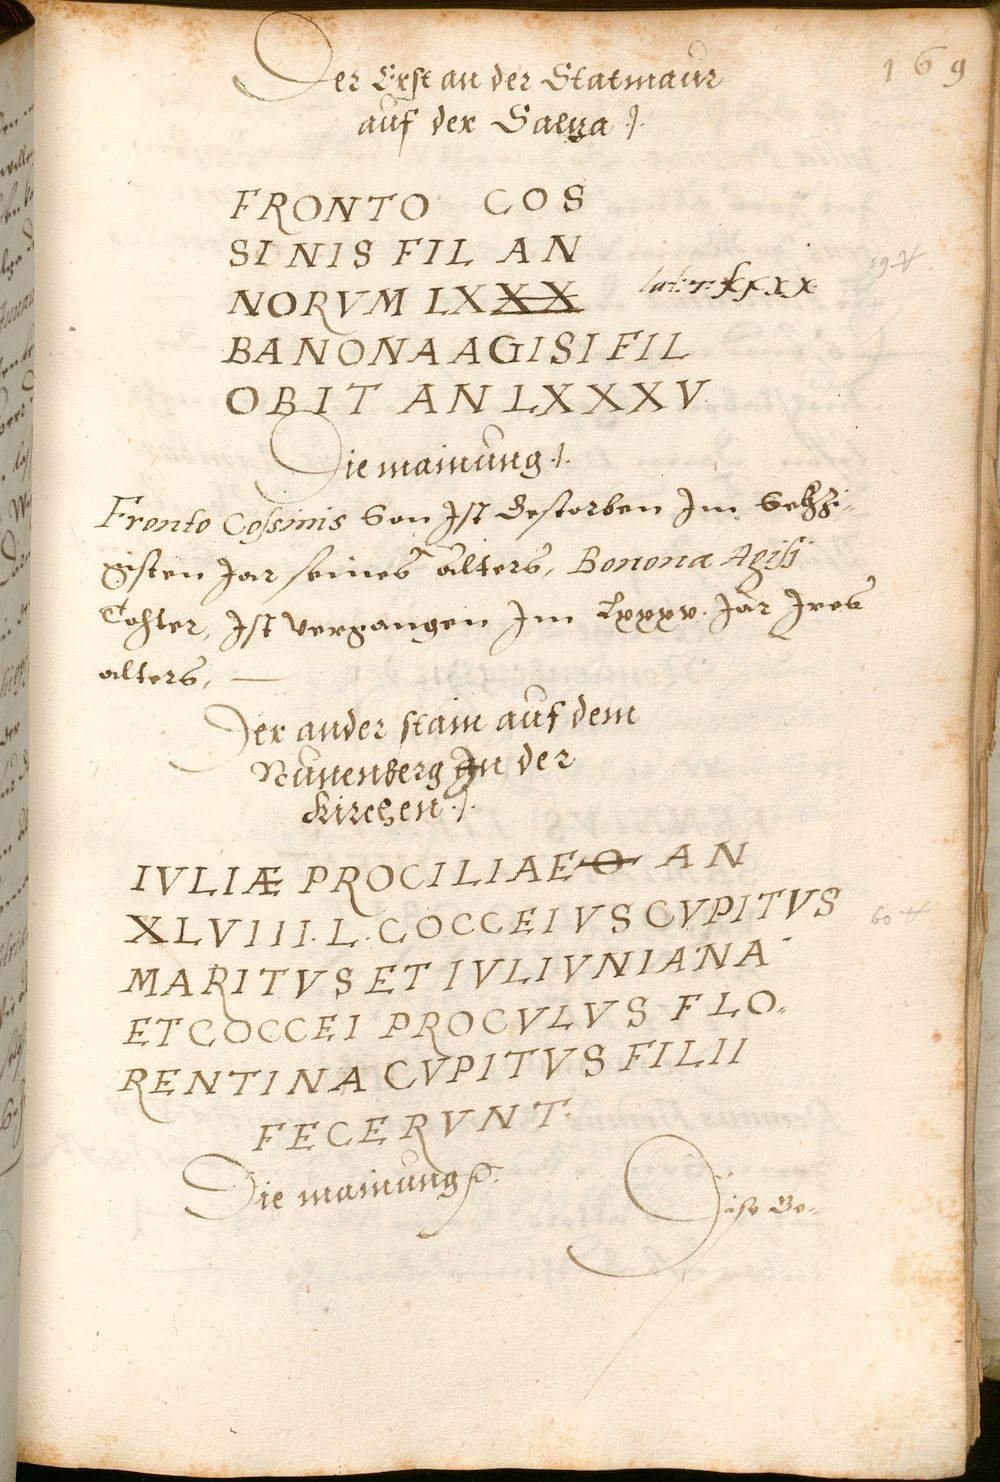 169
Der Erst an der Statmaur
auf der Salza
FRONTO COS
SINIS FIL AN
NORVM LXXX
BANONA AGISI FIL
OBIT AN LXXXV.
Die mainung
Fronto Cossinis Son Ist Gestorben Im Sechzi-
gisten Jar seines alters, Bonona Agisi
Tochter, Ist vergangen Im Lxxxv. Jar Ires
alters,
Der ander stain auf dem
Nunenberg In der
Kirchen
IVLIÆ PROCILIAE O AN
XLVIIII. L. COCCEIVS CVPITVS
MARITVS ET IVLIVNIANA
ET COCCEI PROCVLVS FLO-
RENTINA CVPITVS FILII
FECERVNT.
Die mainung
Dise Be-